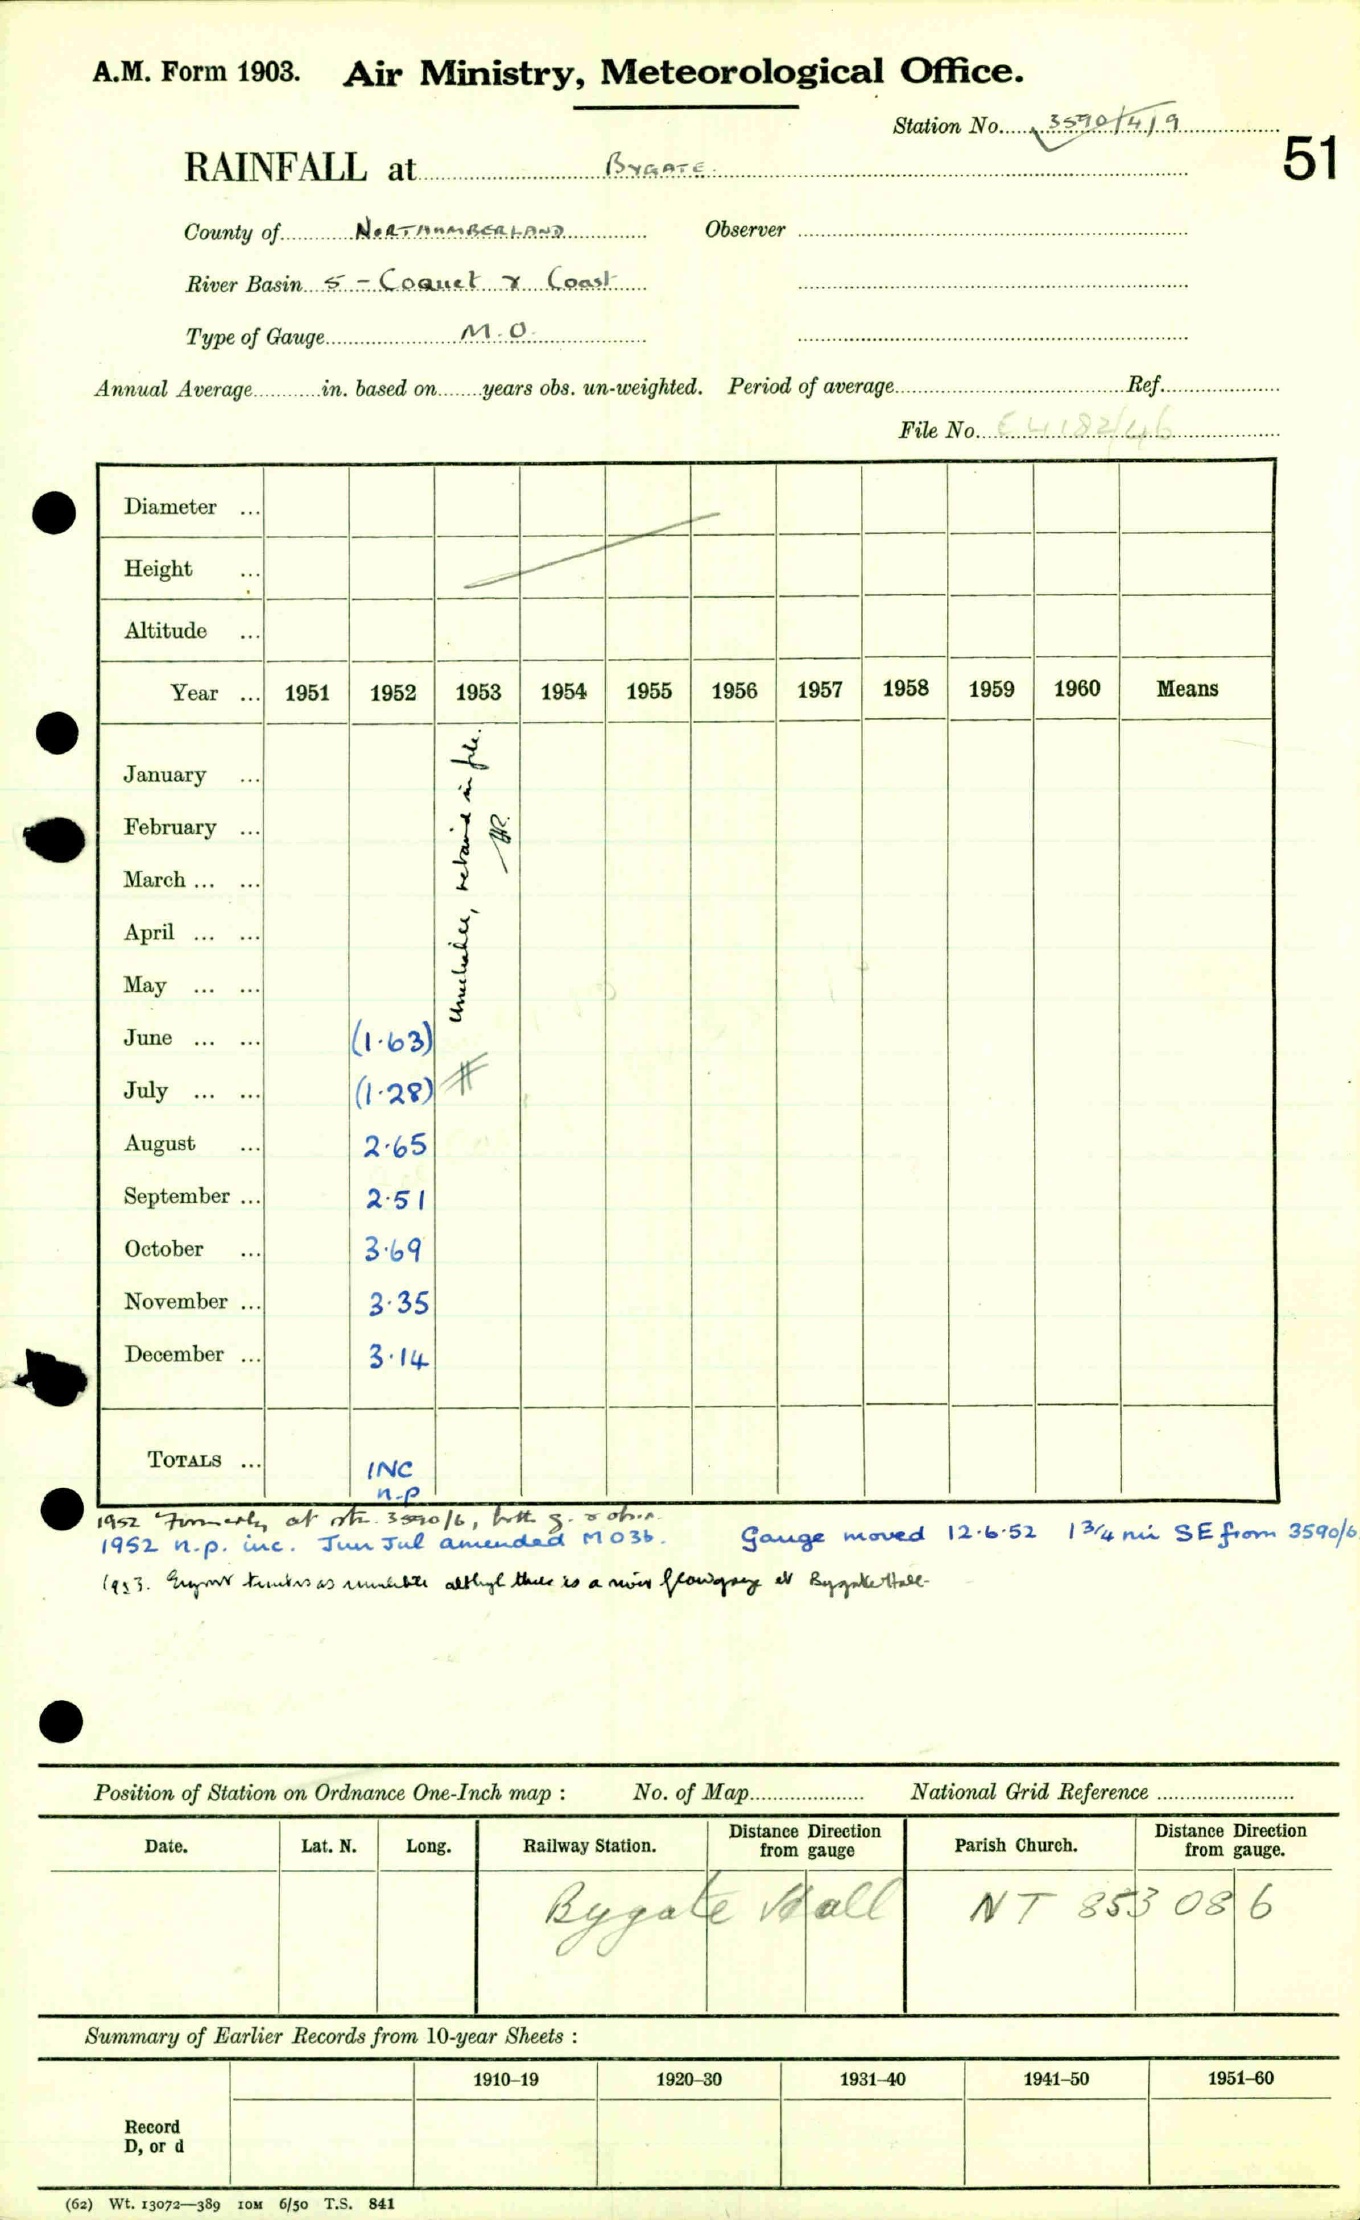 A.M. Form 1903. Air Ministry, Meteorological Office.
Station No. 3590/4/9
51
RAINFALL at BYGATE.
County of NORTHUMBERLAND Observer
River Basin 5 - Coquet & Coast
Type of Gauge M.O.
Annual Average in. based on years obs. un-weighted. Period of average Ref.
File No. E4182/46
Diameter ...
Height ...
Altitude ...
Year ... 1951 1952 1953 1954 1955 1956 1957 1958 1959 1960 Means
Unreliable, retained in file.
January ...
February ...
March ... ...
April ... ...
May ... ...
June ... ... (1·63)
July ... ... (1·28)
August ... 2·65
September ... 2·51
October ... 3·69
November ... 3·35
December ... 3·14
TOTALS ... INC
n.p
1952 Formerly at 3590/6, both g. & obsr.
1952 n.p. inc. Jun Jul amended MO3b. Gauge moved 12·6·52 1 3/4 mi SE from 3590/6
1953. as unreliable although there is a river at Bygate Hall
Position of Station on Ordnance One-Inch map : No. of Map National Grid Reference
Date. Lat. N. Long. Railway Station. Distance Direction from gauge Parish Church. Distance Direction from gauge.
Bygate Hall NT 853 086
Summary of Earlier Records from 10-year Sheets :
1910–19 1920–30 1931–40 1941–50 1951–60
Record
D, or d
(62) Wt. 13072—389 10M 6/50 T.S. 841